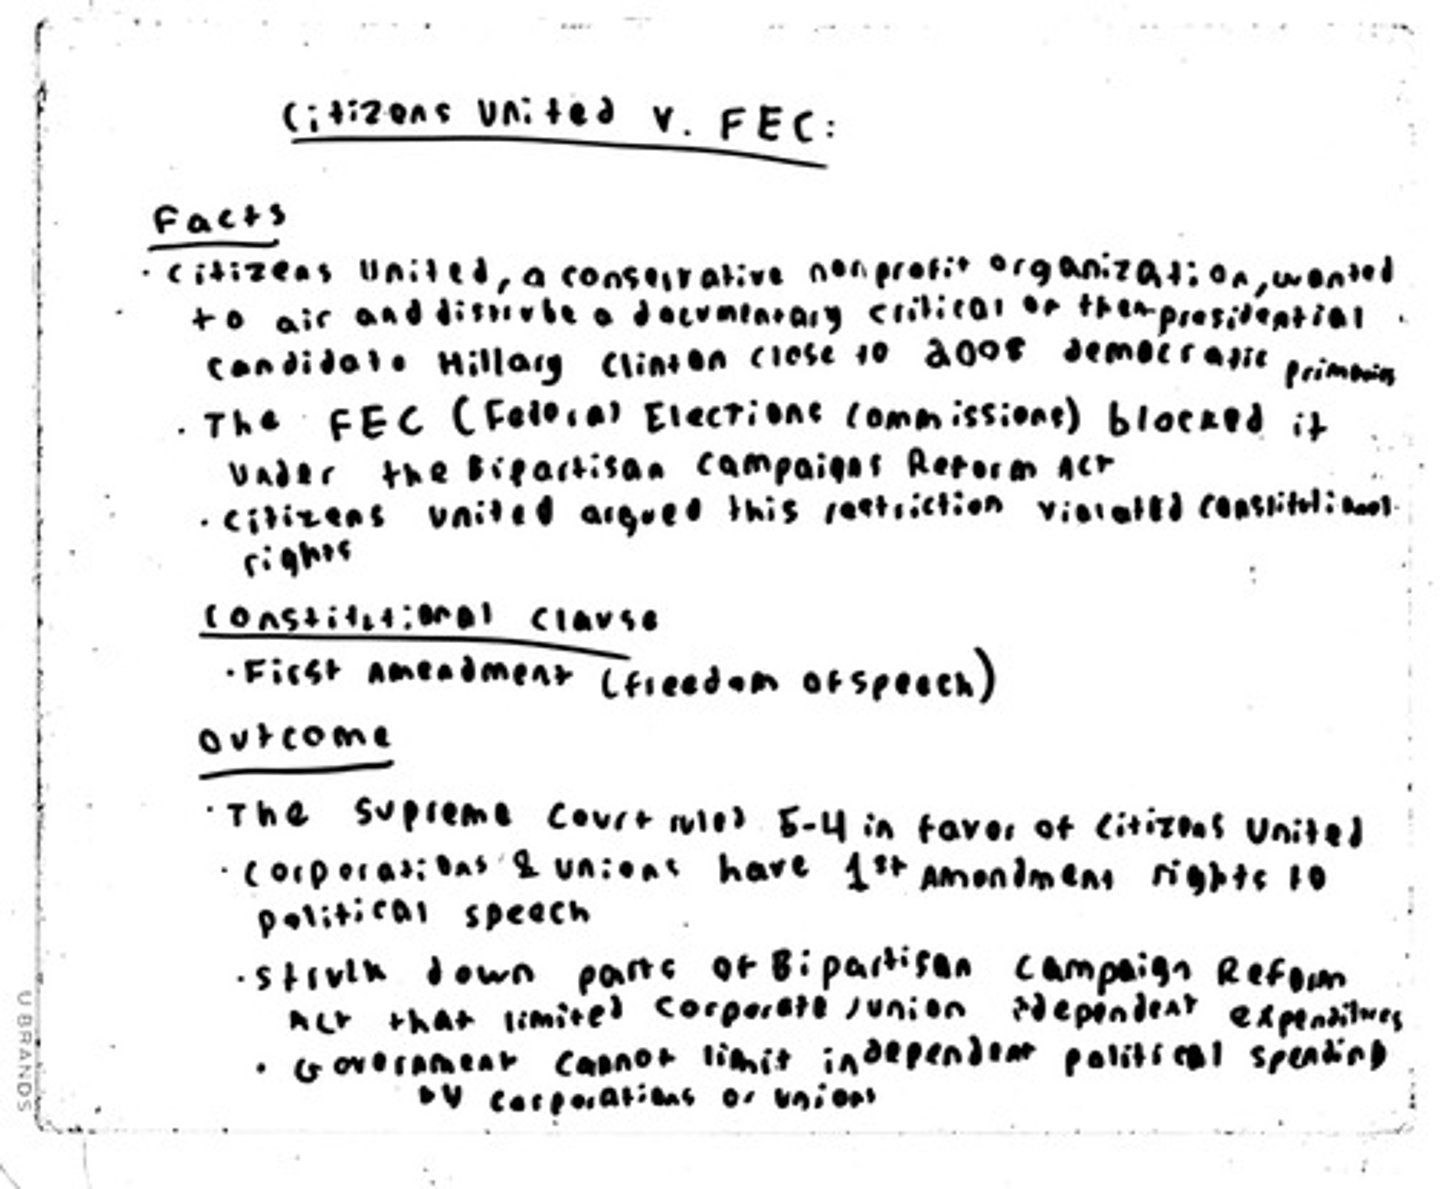 Citizens United v. FEC:
Facts
· Citizens United, a conservative nonprofit organization, wanted
to air and distribute a documentary critical of then-presidential
candidate Hillary Clinton close to 2008 democratic primaries
· The FEC (Federal Elections Commissions) blocked it
under the Bipartisan Campaigns Reform Act
· Citizens United argued this restriction violated constitutional
rights
Constitutional Clause
· First Amendment (freedom of speech)
Outcome
· The Supreme Court ruled 5-4 in favor of Citizens United
· Corporations & unions have 1st Amendment rights to
political speech
· Struck down parts of Bipartisan Campaign Reform
Act that limited corporate/union independent expenditures
· Government cannot limit independent political spending
by corporations or unions
U BRANDS